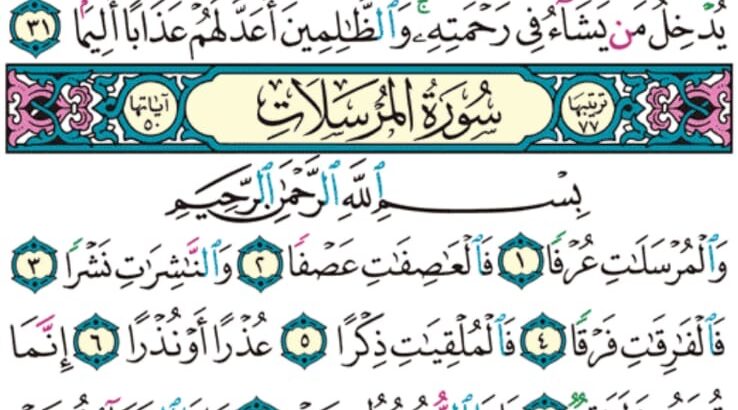 يُدْخِلُ مَن يَشَآءُ فِى رَحْمَتِهِۦ ۚ وَٱلظَّٰلِمِينَ أَعَدَّ لَهُمْ عَذَابًا أَلِيمًۢا ٣١
ترتيبها ٧٧ سُورَةُ المُرْسَلَاتِ آياتها ٥٠
بِسْمِ ٱللَّهِ ٱلرَّحْمَٰنِ ٱلرَّحِيمِ
وَٱلْمُرْسَلَٰتِ عُرْفًا ١ فَٱلْعَٰصِفَٰتِ عَصْفًا ٢ وَٱلنَّٰشِرَٰتِ نَشْرًا ٣
فَٱلْفَٰرِقَٰتِ فَرْقًا ٤ فَٱلْمُلْقِيَٰتِ ذِكْرًا ٥ عُذْرًا أَوْ نُذْرًا ٦ إِنَّمَا